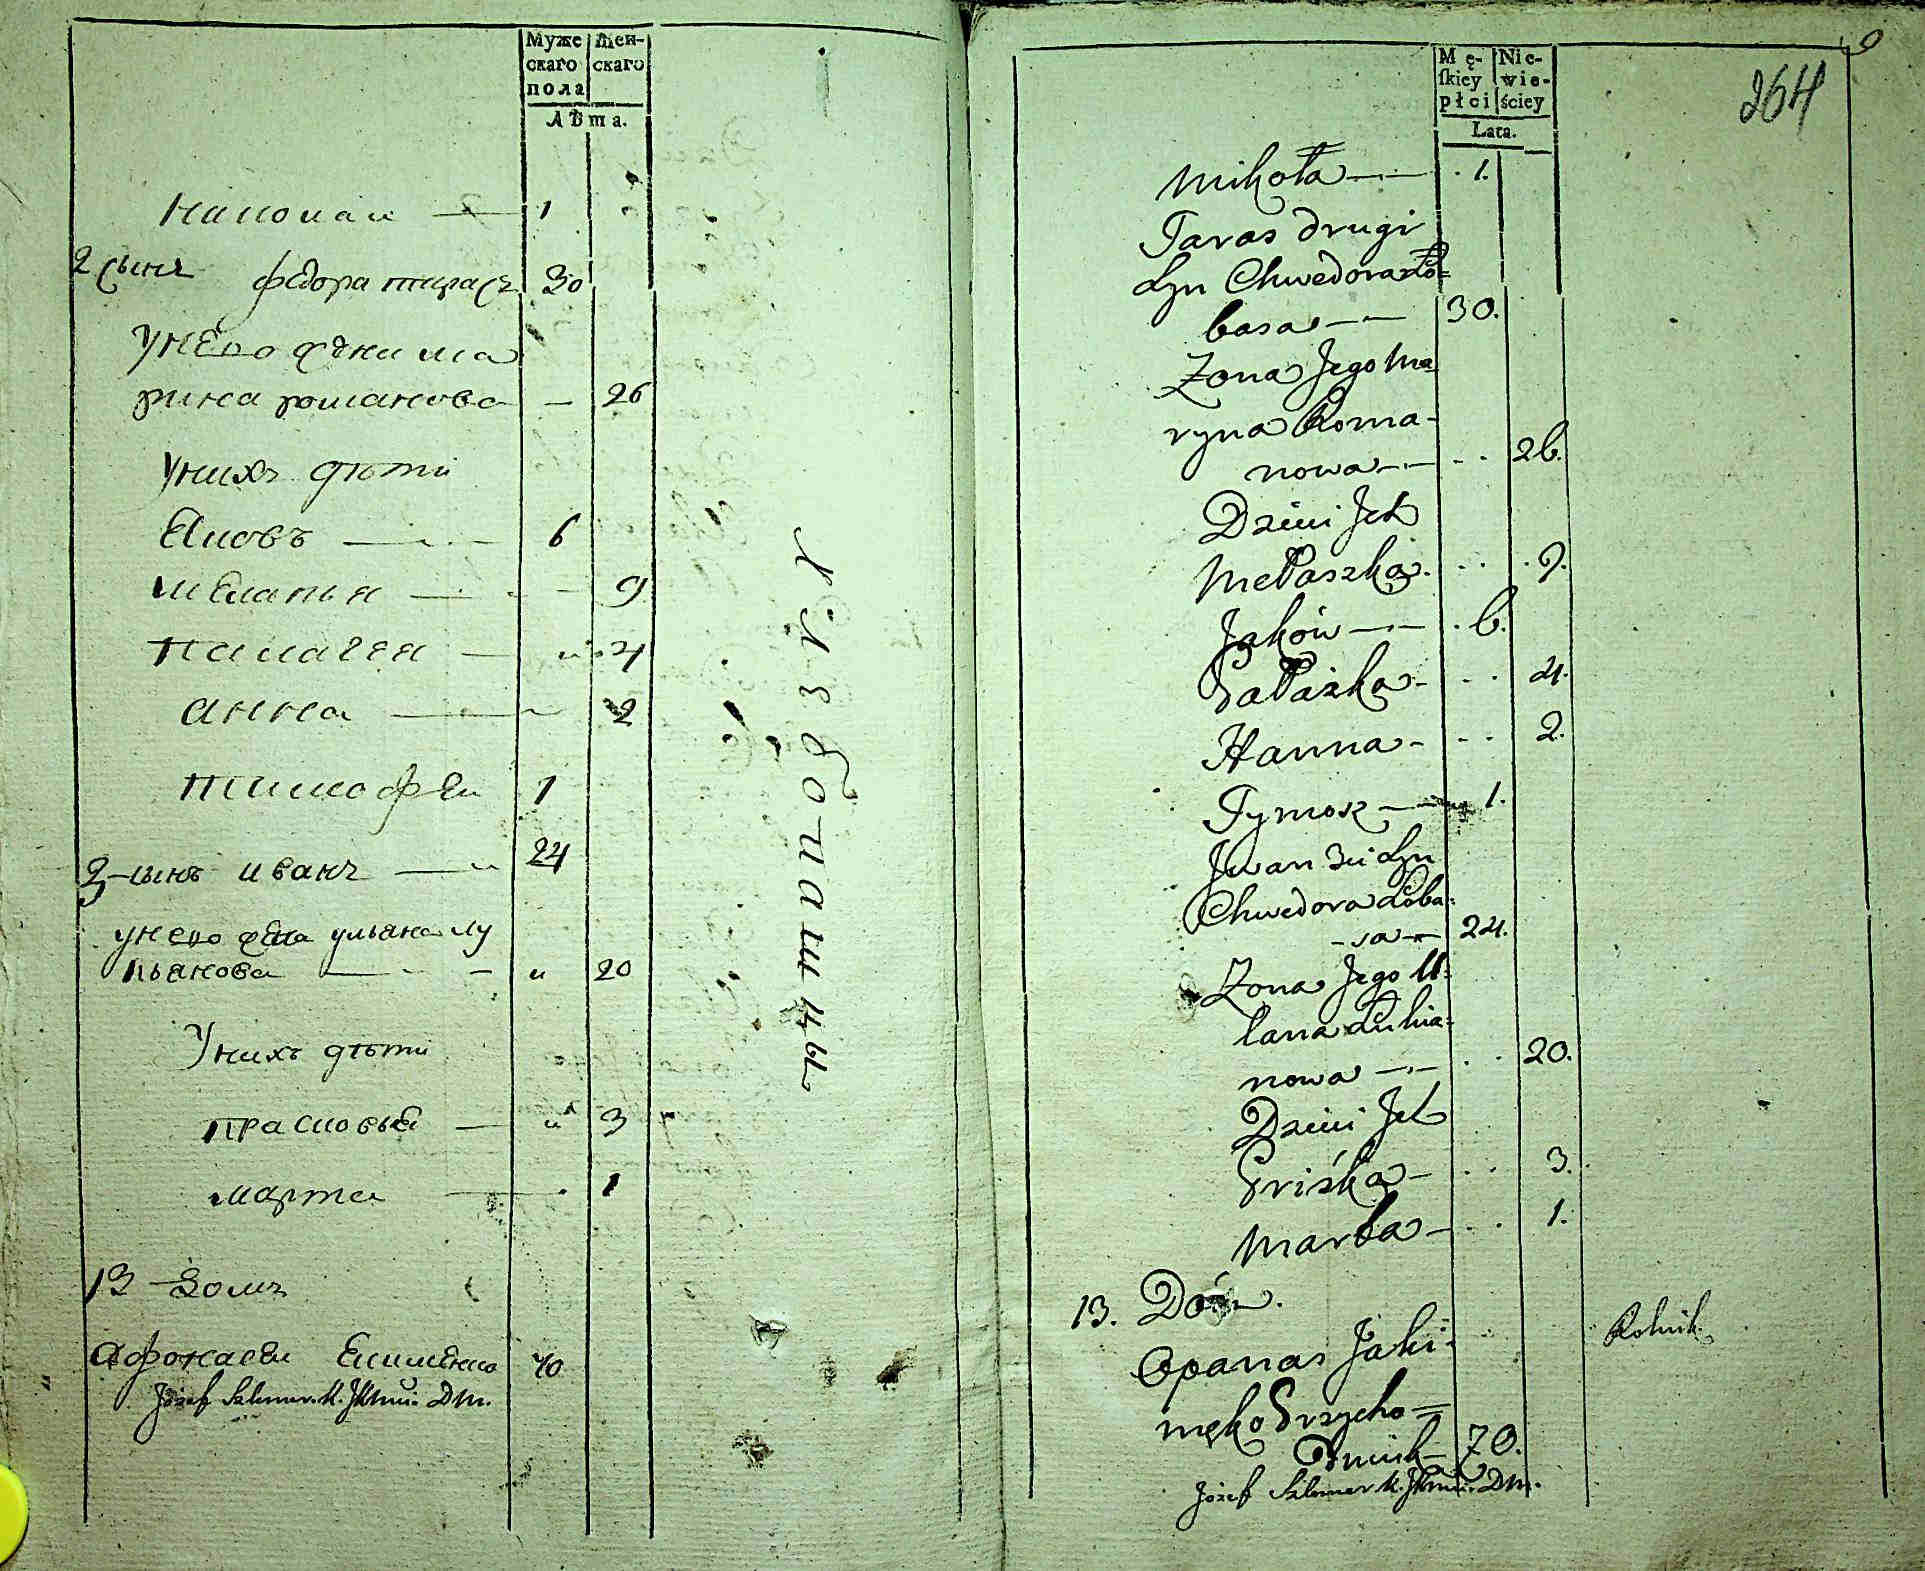 Муже
скаго
пола
Жен-
скаго
Лѣта.
Николаи 1
2 сынъ Федора тарасъ 30
Унего жена ма
рина романова 26
Унихъ дѣти
Яковъ 6
меланья 9
палагея 4
анна 2
тимофеи 1
3 сынъ иванъ 24
унего жена ульяна лу
кьянова 20
Унихъ дѣти
прасковья 3
марта 1
13 домъ
Афонасеи Екименко 70
Józef
хлебопашцы
Mę-
skiey
płci
Nie-
wie-
ściey
Lata.
9
264
Mikoła 1.
Taras drugi
Syn Chwedora Ło=
basa 30.
Zona Jego Ma
ryna Roma-
nowa 26.
Dzieci Ich
Mełaszka 9.
Jaków 6.
Pałażka 4.
Hanna 2.
Tymosz 1.
Jwan 3ci Syn
Chwedora Łoba-
sa 24.
Zona Jego U=
lana Łukia=
nowa 20.
Dzieci Ich
Priśka 3.
Marta 1.
13. Dom.
Opanas Jaki=
męko Przycho=
dniuk 70.
Rolnik
Józef